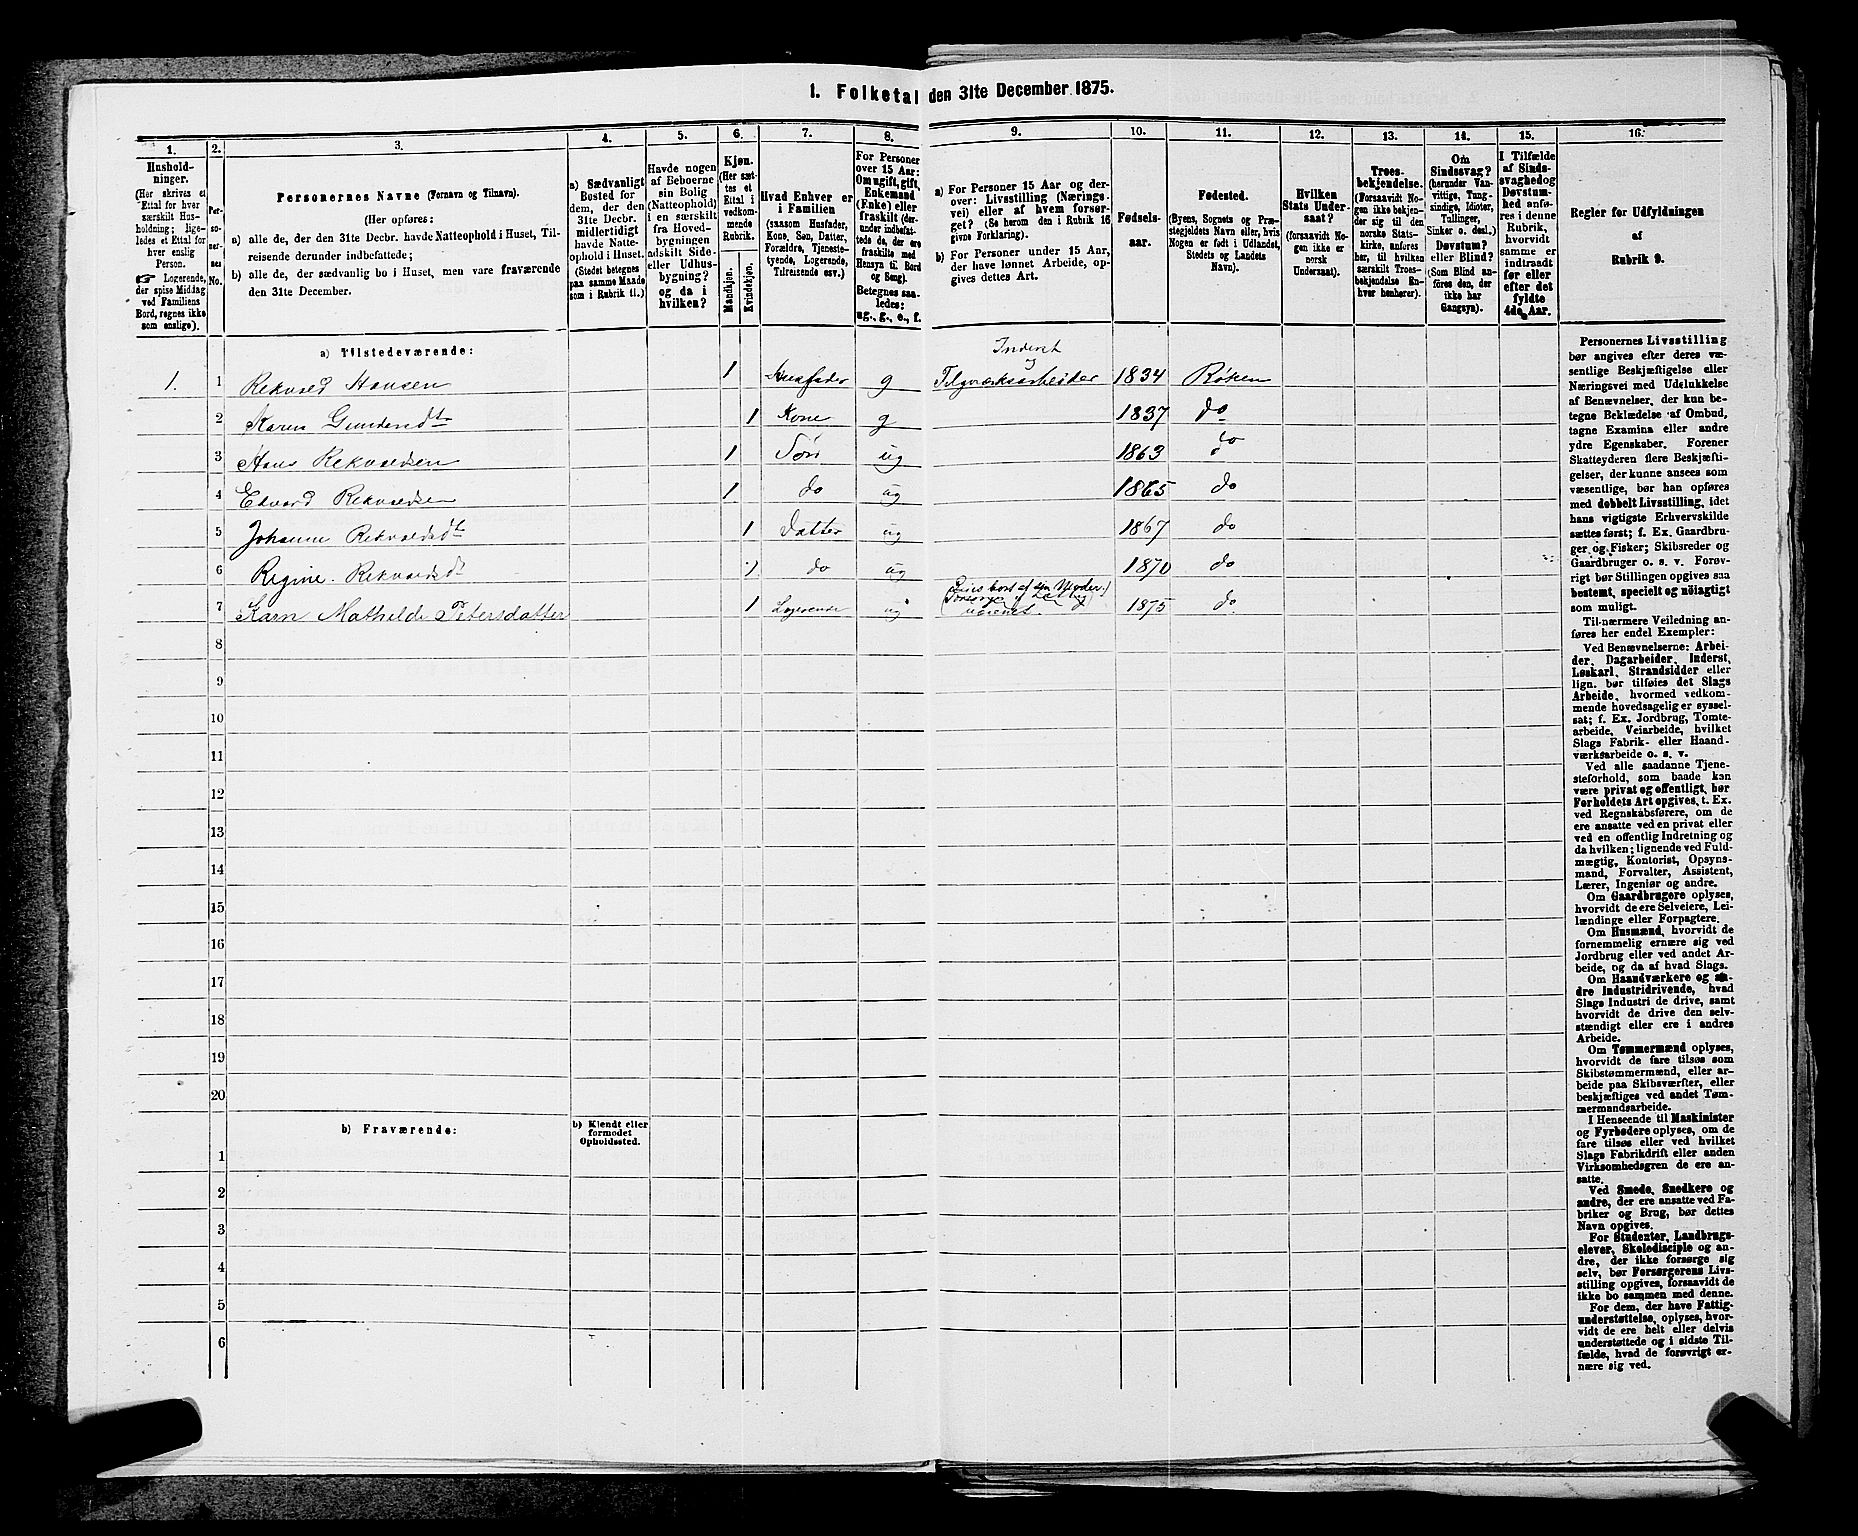 1. Folketal den 31te December 1875.
1. 2. 3. 4. 5. 6. 7. 8. 9. 10. 11. 12. 13. 14. 15. 16.
Hushold-
ninger.
(Her skrives et
Ettal for hver
særskilt Hus-
holdning; lige-
ledes et Ettal for
hver enslig
Person.
☞ Logerende,
der spise Middag
ved Familiens
Bord, regnes ikke
som enslige).
Per-
so-
ner-
nes
No.
Personernes Navne (Fornavn og Tilnavn).
(Her opføres:
a) alle de, der den 31te Decbr. havde Natteophold i Huset, Til-
reisende derunder indbefattede;
b) alle de, der sædvanlig bo i Huset, men vare fraværende
den 31te December.
a) Sædvanligt
Bosted for
dem, der den
31te Decbr.
midlertidigt
havde Natte-
ophold i Huset.
(Stedet betegnes
paa samme Maade
som i Rubrik 11.)
Havde nogen
af Beboerne
sin Bolig
(Natteophold)
i en særskilt
fra Hoved-
bygningen
adskilt Side-
eller Udhus-
bygning?
og da i
hvilken?
Kjøn.
(Her sæt-
tes et
Ettal i
vedkom-
mende
Rubrik.
Mandkjøn.
Kvindekjøn.
Hvad Enhver er
i Familien
(saasom Husfader,
Kone, Søn, Datter,
Forældre, Tjeneste-
tyende, Logerende,
Tilreisende osv.)
For Personer
over 15 Aar:
Om ugift, gift,
Enkemand
(Enke) eller
fraskilt (der-
under indbefat-
tede de, der ere
fraskilte med
Hensyn til Bord
og Seng).
Betegnes saa-
ledes:
ug., g., e., f.
a) For Personer 15 Aar og der-
over: Livsstilling (Nærings-
vei) eller af hvem forsør-
get. (Se herom den i Rubrik 16
givne Forklaring).
b) For Personer under 15 Aar,
der have lønnet Arbeide, op-
gives dettes Art.
Fødsels-
aar.
Fødested.
(Byens, Sognets og Præ-
stegjeldets Navn eller, hvis
Nogen er født i Udlandet,
Stedets og Landets
Navn).
Hvilken
Stats Under-
saat?
(forsaavidt No-
gen ikke er
norsk
Undersaat).
Troes-
bekjendelse.
(Forsaavidt No-
gen ikke bekjen-
der sig til den
norske Stats-
kirke, anføres
her, til hvilken
særskilt Troes-
bekjendelse En-
hver henhører).
Om
Sindssvag?
(herunder Van-
vittige, Tung-
sindige, Idioter,
Tullinger,
Sinker o. desl.)
Døvstum?
eller Blind?
(Som Blind an-
føres den, der
ikke har
Gangsyn).
I Tilfælde
af Sinds-
svaghed og
Døvstum-
hed anfø-
res i denne
Rubrik,
hvorvidt
samme er
indtraadt
før eller
efter det
fyldte
4de Aar.
Regler for Udfyldningen
af
Rubrik 9.
a) Tilstedeværende:
Inderst
1. 1 Rekvaed Hansen 1 Husfader g Teglværksarbeider 1834 Røken
2 Karen Gundersdt 1 Kone g 1837 do
3 Hans Rekvaldsen 1 Søn ug 1863 do
4 Edvard Rekvaldsen 1 do ug 1865 do
5 Johanne Rekvaldsdt 1 Datter ug 1867 do
6 Regine Rekvaldsdt 1 do ug 1870 do
7 Karn Mathilde Petersdatter 1 Logerende ug 1875 do
8
9
10
11
12
13
14
15
16
17
18
19
20
b) Fraværende: b) Kjendt eller
formodet
Opholdssted.
1
2
3
4
5
6
Personernes Livsstilling
bør angives efter deres væ-
sentlige Beskjæftigelse eller
Næringsvei med Udelukkelse
af Benævnelser, der kun be-
tegne Beklædelse af Ombud,
tagne Examina eller andre
ydre Egenskaber. Forener
Skatteyderen flere Beskjæfti-
gelser, der kunne ansees som
væsentlige, bør han opføres
med dobbelt Livsstilling, idet
hans vigtigste Erhvervskilde
sættes først; f. Ex. Gaardbru-
ger og Fisker; Skibsreder og
Gaardbruger o. s. v. Forøv-
rigt bør Stillingen opgives saa
bestemt, specielt og nøiagtigt
som muligt.
Til nærmere Veiledning an-
føres her endel Exempler:
Ved Benævnelserne: Arbei-
der, Dagarbeider, Inderst,
Løskarl, Strandsidder eller
lign. bør tilføies det Slags
Arbeide, hvormed vedkom-
mende hovedsagelig er syssel-
sat; f. Ex. Jordbrug, Tomte-
arbeide, Veiarbeide, hvilket
Slags Fabrik- eller Haand-
værksarbeide o. s. v.
Ved alle saadanne Tjene-
steforhold, som baade kan
være privat og offentligt, bør
Forholdets Art opgives, t. Ex.
ved Regnskabsførere, om de
ere ansatte ved en privat eller
ved en offentlig Indretning og
da hvilken; lignende ved Fuld-
mægtig, Kontorist, Opsyns-
mand, Forvalter, Assistent,
Lærer, Ingeniør og andre.
Om Gaardbrugere oplyses,
hvorvidt de ere Selveiere, Lei-
lændinge eller Forpagtere.
Om Husmænd, hvorvidt de
fornemmelig ernære sig ved
Jordbrug eller ved andet Ar-
beide, og da af hvad Slags.
Om Haandværkere og an-
dre Industridrivende, hvad
Slags Industri de drive, samt
hvorvidt de drive den selv-
stændigt eller ere i andres
Arbeide.
Om Tømmermænd oplyses,
hvorvidt de fare tilsøs som
Skibstømmermænd, eller ar-
beide paa Skibsværfter, eller
beskjæftiges ved andet Tøm-
mermandsarbeide.
I Henseende til Maskinister
og Fyrbødere oplyses, om de
fare tilsøs eller ved hvilket
Slags Fabrikdrift eller anden
Virksomhedsgren de ere an-
satte.
Ved Smede, Snedkere og
andre, der ere ansatte ved Fa-
briker og Brug, bør dettes
Navn opgives.
For Studenter, Landbrugs-
elever, Skoledisciple og an-
dre, der ikke forsørge sig
selv, bør Forsørgerens Livs-
stilling opgives, forsaavidt de
ikke bo sammen med denne.
For dem, der have Fattig-
understøttelse, oplyses, hvor-
vidt de ere helt eller delvis
understøttede og i sidste Til-
fælde, hvad de forøvrigt er-
nære sig ved.